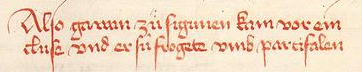 Also gawan zů sigunien kam vor ein
cluse vnd er sü frogete vmb parcifalen